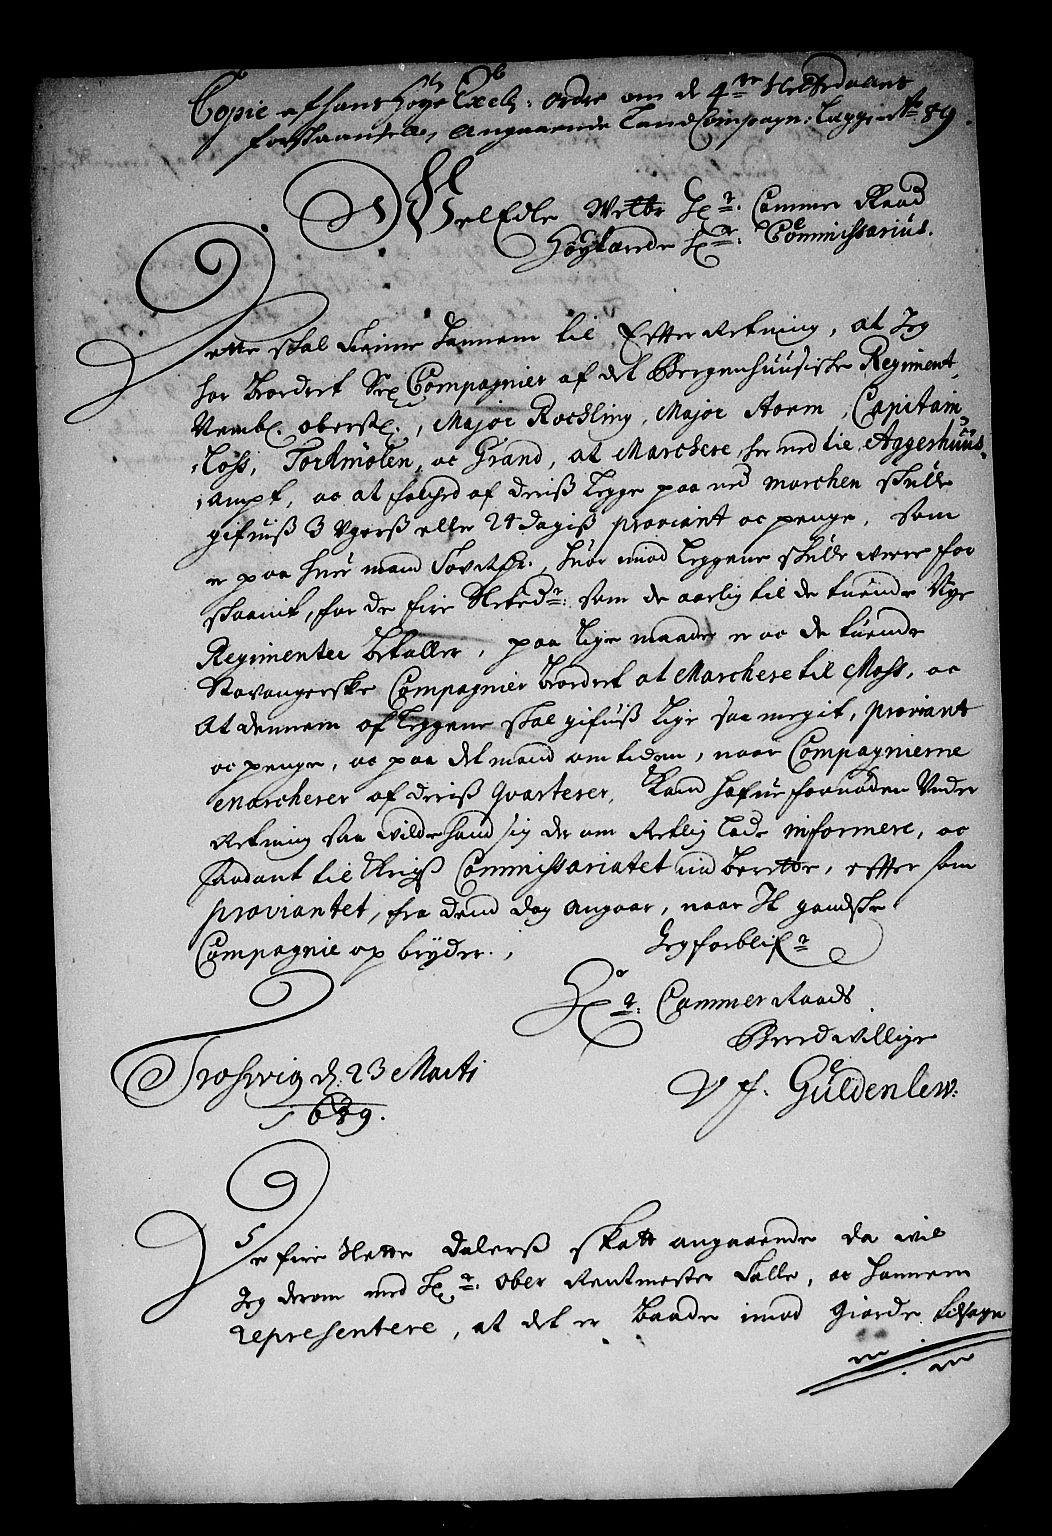 Copie af hans høye Excel: ordre om de 4 Rettedalers
forskaansel, Angaaende Land Compagn: Lægger Ao 89.
WelEdle Welbr Hr: Cammer Raad
Høylærde Hr: Commissarius.
Dette skal tienne hannem til Efter Retning, at Jeg
har beordret Sex Compagnier af det Bergenhuusiske Regiment,
Nembl. oberstl., Major Roechling, Major Storm, Capitain
Coss, Tordmølen, oc Grand, at Marchere her ned til Aggershuus
ampt, oc at folched af deris Legge paa ned marchen skulle
gifuis 3 Ugers eller 24 dagis proviant oc penge, som
er paa huer mand, huor imod Leggene skulle were for
skaanit, for de fire Rettedr: som de aarlig til de tuende Nye
Regimenter betaller, paa lige maade er oc de tuende
Stavangerske Compagnier beordret at Marchere til Moss, oc
At dennem af Leggene skal gifuis lige saa megit, proviant
oc penge, oc paa det mand om tiden, naar Compagnierne
Marcherer af deris Qvarterer, Kand hafue fornøden Under
Retning saa wilde hand sig der om Retlig lade informere, oc
saadant til Krigs Commissariatet ind berette, efter som
proviantet, fra dend dag angaar, naar Et gandske
Compagnie op bryder.,
Jeg forblifr
Hr: Cammer Raads
Beredwillige
U f. Güldenlew:
Troswig d. 23 Marti
1689.
De fire Rette dalers skatt angaaende da wil
Jeg derom med Hr: Ober Rentmester talle, oc hannem
representere, at det er baade imod giorde tilsagn